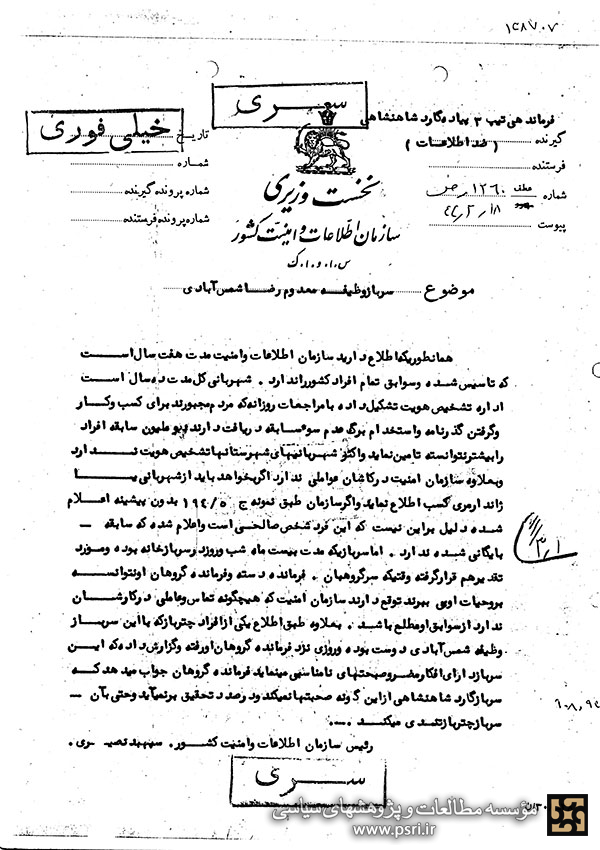 ۱۳۸۷۰۷
سری
خیلی فوری
فرماندهی تیپ ۲ پیاده گارد شاهنشاهی
گیرنده (ضد اطلاعات)
فرستنده
شماره عطف ۱۲۶۰
پیوست
تاریخ
شماره
شماره پرونده گیرنده
شماره پرونده فرستنده
نخست وزیری
سازمان اطلاعات و امنیت کشور
موضوع سرباز وظیفه معدوم رضا شمس آبادی
همانطوریکه اطلاع دارید سازمان اطلاعات وامنیت مدت هفت سال است
که تاسیس شده و سوابق تمام افراد کشور را ندارد . شهربانی کل مدت ده سال است
اداره تشخیص هویت تشکیل داده با مراجعات روزانه که مردم مجبورند برای کسب وکار
وگرفتن گذرنامه و استخدام برگ عدم سوء سابقه دریافت دارند ودو ملیون سابقه افراد
را بیشتر نتوانسته تامین نماید واکثر شهربانیهای شهرستانها تشخیص هویت ندارد
وبعلاوه سازمان امنیت درکاشان عواملی ندارد اگر بخواهد باید از شهربانی یا
ژاندارمری کسب اطلاع نماید واگر سازمان طبق نمونه ج ۱۹۴/۵ بدون پیشینه اعلام
شده دلیل براین نیست که این فرد شخص صالحی است واعلام شده که سابقه -
بایگانی شده ندارد . اما سربازیکه مدت بیست ماه شب وروز در سربازخانه بوده ومورد
تقدیرهم قرارگرفته وقتیکه سرگروهبان . فرمانده دسته وفرمانده گروهان او نتوانسته
بروحیات اوپی ببرند توقع دارند سازمان امنیت که هیچگونه تماس وعاملی درکارشان
ندارد از سوابق او مطلع باشد . بعلاوه طبق اطلاع یکی از افراد چترباز که با این سرباز
وظیفه شمس آبادی دوست بوده وروزی نزد فرمانده گروهان او رفته وگزارش داده که این
سرباز دارای افکار مضر وصحبتهای نامناسبی مینماید فرمانده گروهان جواب میدهد که
سرباز گارد شاهنشاهی از این گونه صحبتها نمیکند ودرصدد تحقیق برنمیآید وحتی بآن -
سرباز چترباز تندی میکند .
رئیس سازمان اطلاعات وامنیت کشور . سپهبد نصیری .
سری
مؤسسه مطالعات و پژوهشهای سیاسی
www.psri.ir